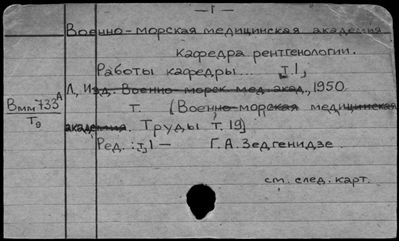 — 1 —
Военно-морская медицинская академия
Кафедра рентгенологии.
Работы кафедры... т.1,
Л, Изд. Военно-морск. мед. акад., 1950.
Вмм733А
Т9
т. (Военно-морская медицинская
академия. Труды т. 19)
Ред.: т,1 — Г.А. Зедгенидзе.
см. след. карт.